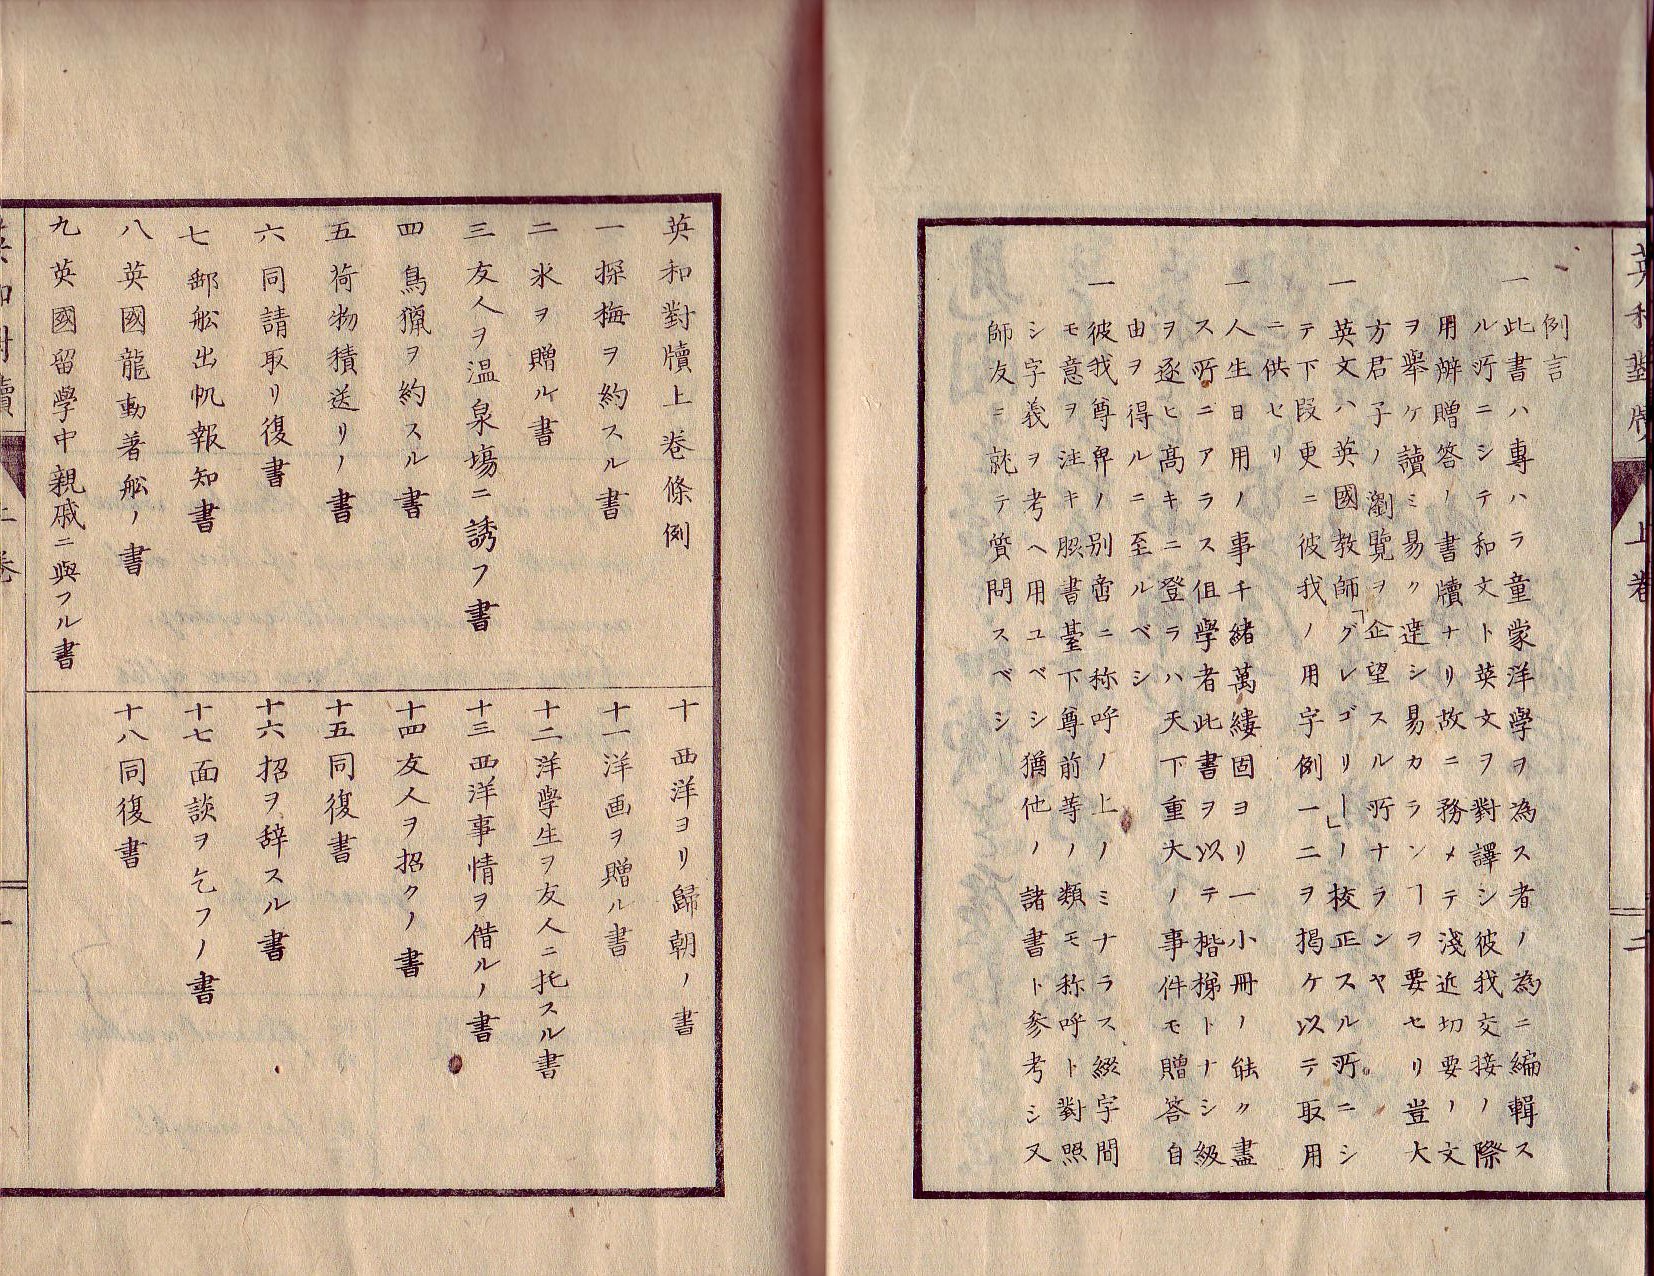 英和對牘 上巻 二
例言
一此書ハ專ハラ童蒙洋學ヲ為ス者ノ為ニ編輯ス
ル所ニシテ和文ト英文ヲ對譯シ彼我交接ノ際
用辨贈答ノ書牘ナリ故ニ務メテ淺近切要ノ文
ヲ舉ケ讀ミ易ク達シ易カラン〡ヲ要セリ豈大
方君子ノ瀏覽ヲ企望スル所ナランヤ
一英文ハ英國教師「グレゴリー」ノ校正スル所ニシ
テ下段更ニ彼我ノ用字例一二ヲ掲ケ以テ取用
ニ供セリ
一人生日用ノ事千緒萬縷固ヨリ一小冊ノ能ク盡
ス所ニアラス伹學者此書ヲ以テ楷梯トナシ級
ヲ逐ヒ髙キニ登ラハ天下重大ノ事件モ贈答自
由ヲ得ルニ至ルベシ
一彼我尊卑ノ別啻ニ称呼ノ上ノミナラス綴字間
モ意ヲ注キ照書䑓下尊前等ノ類モ称呼ト對照
シ字義ヲ考ヘ用ユベシ猶他ノ諸書ト参考シ又
師友ニ就テ質問スベシ
英和對牘上巻條例
一 探梅ヲ約スル書
二 氷ヲ贈ル書
三 友人ヲ温泉塲ニ誘フ書
四 鳥獵ヲ約スル書
五 荷物積送リノ書
六 同請取リ復書
七 郵舩出帆報知書
八 英國龍動著舩ノ書
九 英國留學中親戚ニ與フル書
十 西洋ヨリ歸朝ノ書
十一 洋画ヲ贈ル書
十二 洋學生ヲ友人ニ托スル書
十三 西洋事情ヲ借ルノ書
十四 友人ヲ招クノ書
十五 同復書
十六 招ヲ辞スル書
十七 面談ヲ乞フノ書
十八 同復書
英和對牘 上巻 一